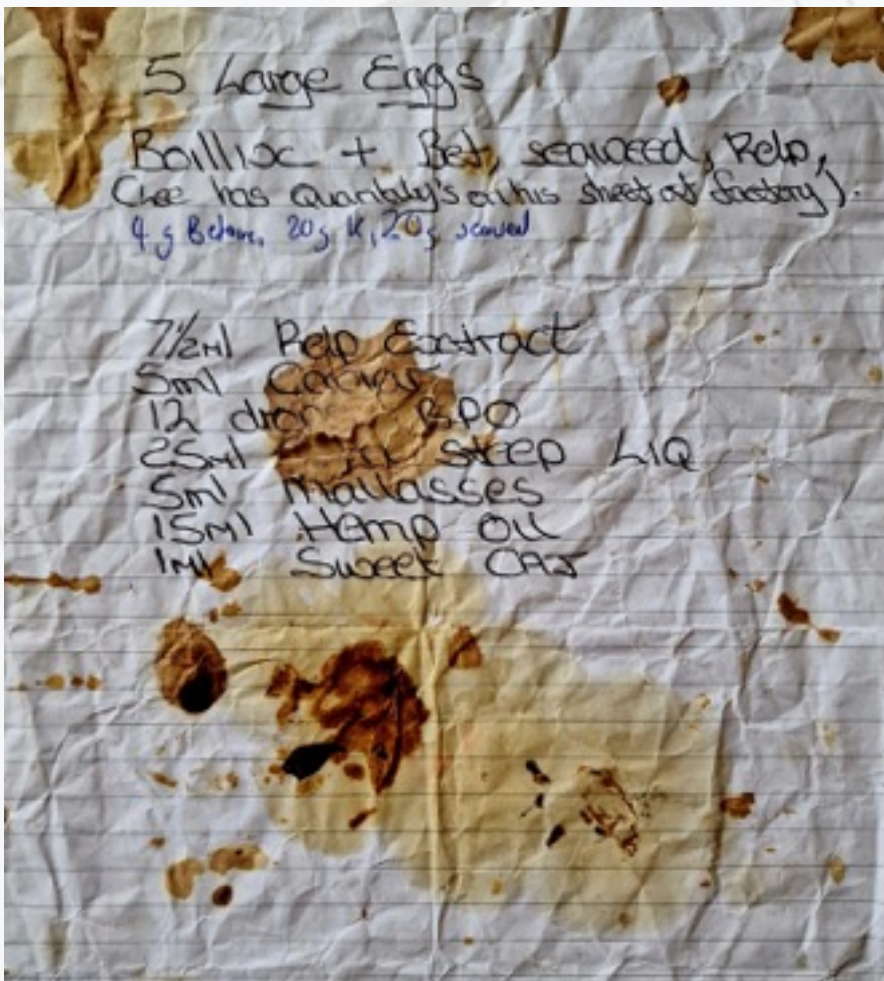 5 Large Eggs
Baillix + Bet, seaweed, Relp,
(Lee has Quantaly's on his sheet at factory).
4g Betaine, 20g K, 20g seaweed
7½ml Relp Extract
5ml
12 BPO
25ml STEEP LIQ
5ml Mallasses
15ml Hemp Oil
1ml Sweet CAJ